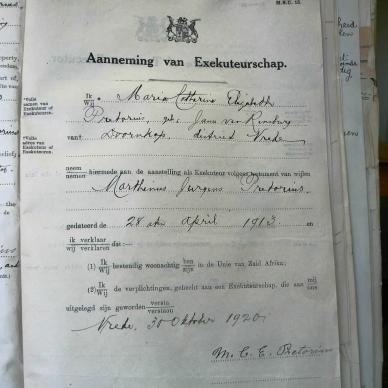 M.H.C. 15.
Aanneming van Exekuteurschap.
*Volle namen van Exekuteur of Exekuteuren.
Ik
Wij
* Maria Catharina Elizabeth
Pretorius, geb. Janse van Rensburg
**Volle adres van Exekuteur of Exekuteuren.
van** Doornkop, distrikt Vrede
neem
nemen
hiermede aan de aanstelling als Exekuteur volgens testament van wijlen
Marthinus Jurgens Pretorius
gedateerd de 28ste April 1913 en
ik verklaar
wij verklaren
dat :—
(1) Ik
Wij
bestendig woonachtig ben
zijn
in de Unie van Zuid Afrika;
(2) Ik
Wij
de verplichtingen, gehecht aan een Exekuteurschap, die aan mij
ons
uitgelegd zijn geworden versta
verstaan
Vrede, 30 Oktober 1920.
M. C. E. Pretorius